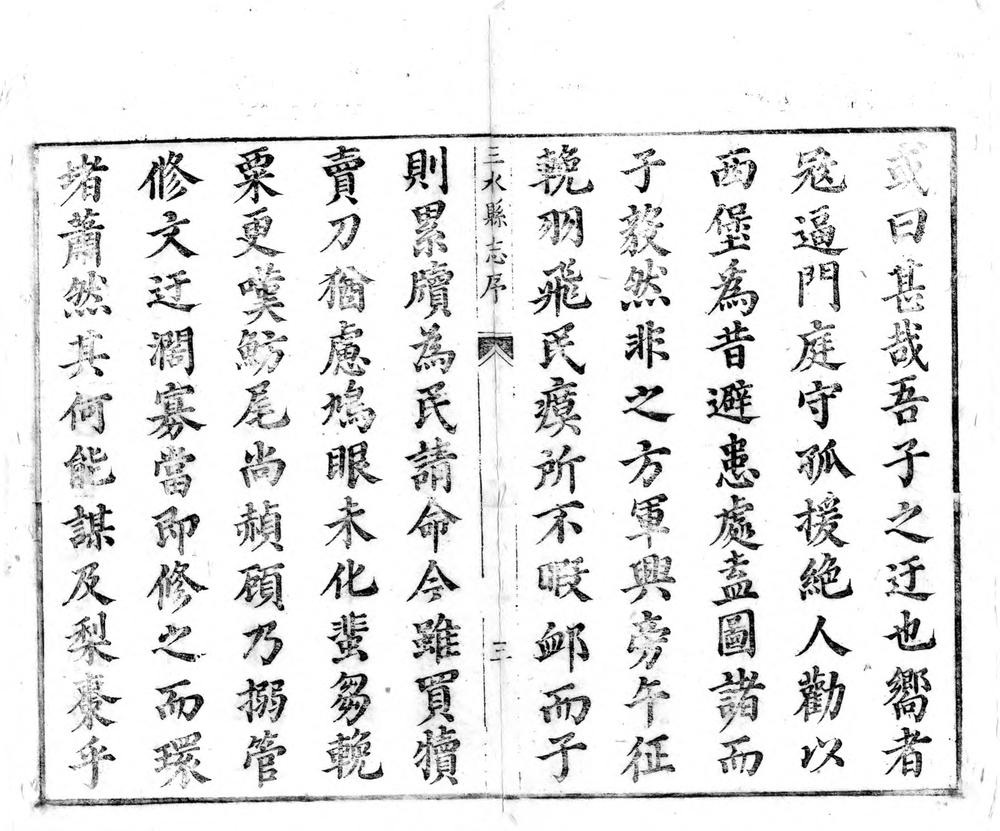 或曰甚哉吾子之迂也嚮者
宼逼門庭守孤援絶人勸以
西堡為昔避患處盍圖諸而
子敖然非之方軍興旁午征
輓羽飛民瘼所不暇䘏而子
三水縣志序
三
則累牘為民請命今雖買犢
賣刀猶慮鳩眼未化蜚芻輓
粟更嘆魴尾尚赬顧乃搦管
修文迂濶寡當即修之而環
堵蕭然其何能謀及梨棗乎